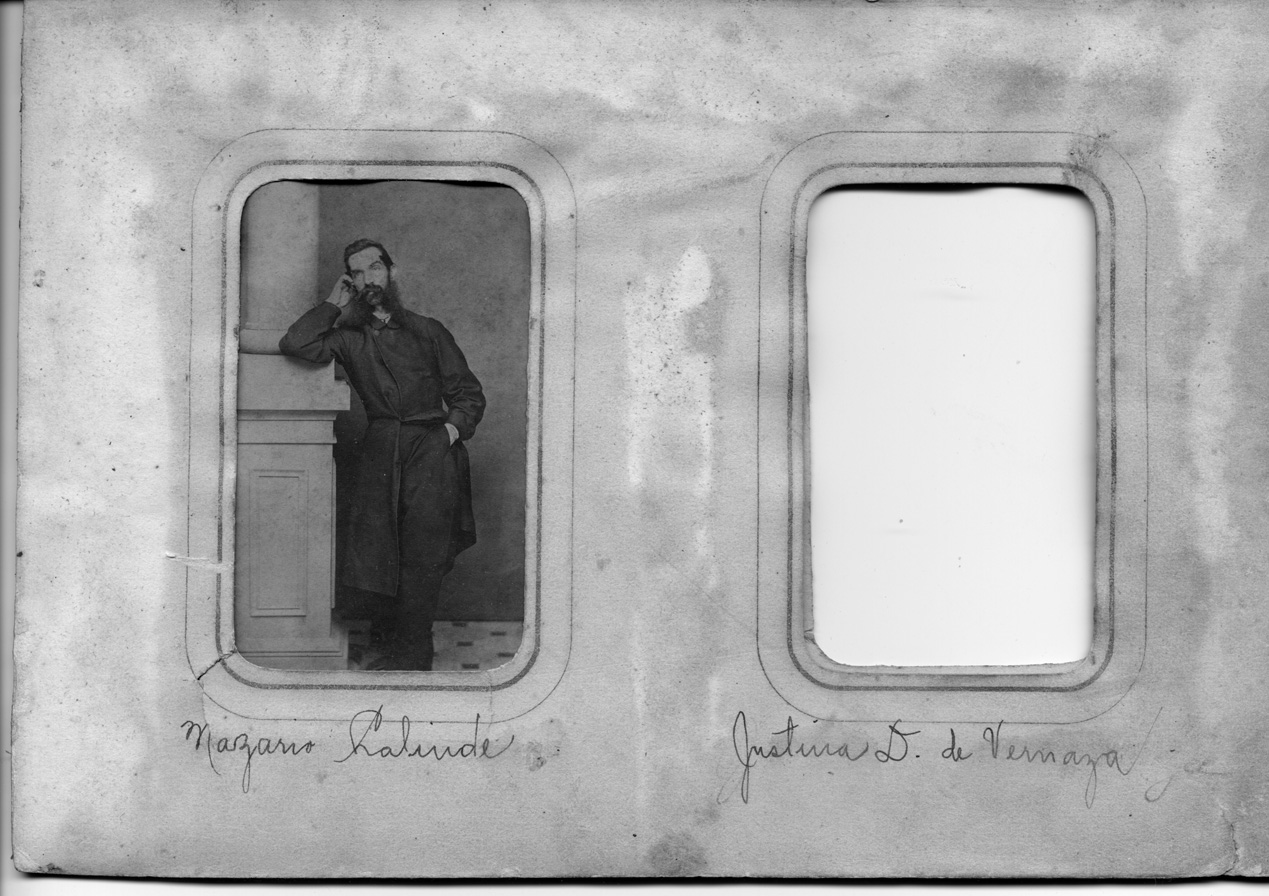 Nazario Lalinde
Justina D. de Vernaza